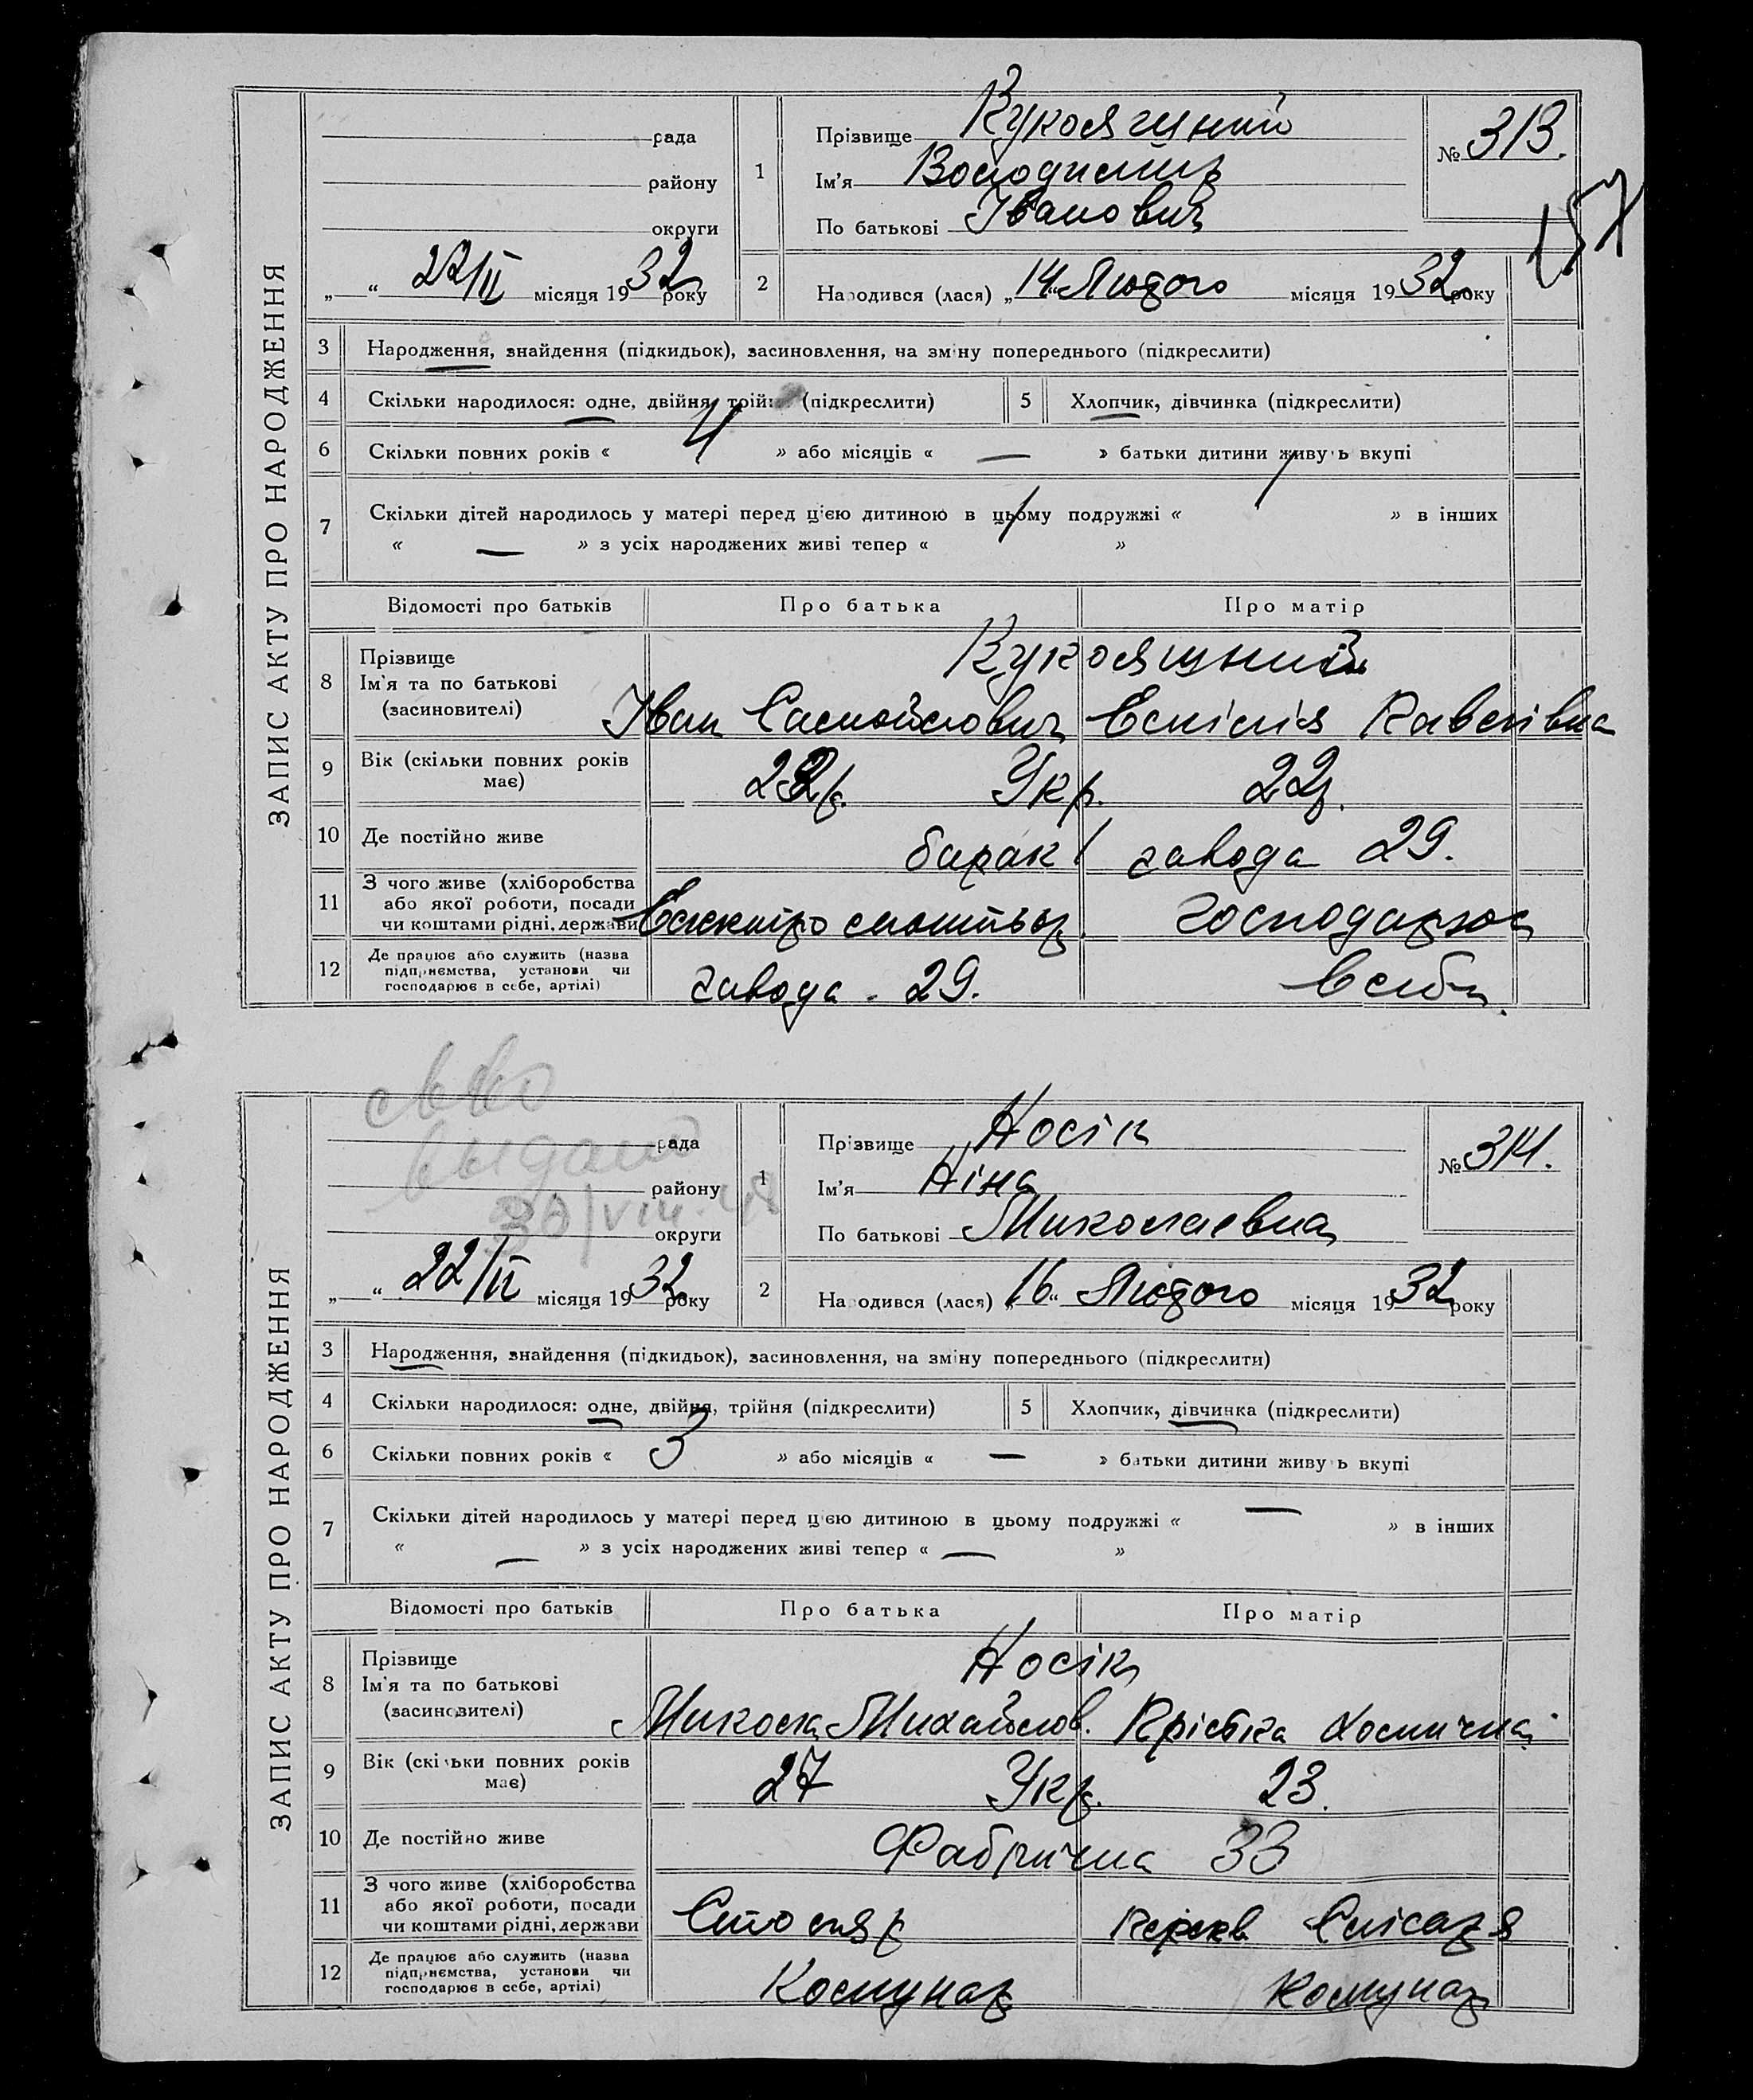 ЗАПИС АКТУ ПРО НАРОДЖЕННЯ
рада
району
округи
„ “ 22/II місяця 1932 року
1
Прізвище
Ім'я Володимир
По батькові Іванович
№ 313.
157
2
Народився (лася) „14“ Лютого місяця 1932 року
3 Народження, знайдення (підкидьок), засиновлення, на зміну попереднього (підкреслити)
4 Скільки народилося: одне, двійня, трійня (підкреслити)
5 Хлопчик, дівчинка (підкреслити)
6 Скільки повних років « 4 » або місяців « — » батьки дитини живуть вкупі
7 Скільки дітей народилось у матері перед цією дитиною в цьому подружжі « 1 » в інших
« — » з усіх народжених живі тепер « 1 »
Відомості про батьків Про батька Про матір
8 Прізвище
Ім'я та по батькові
(засиновителі)
Іван Самойлович
9 Вік (скільки повних років має) Укр. 22р.
10 Де постійно живе барак 1 завода 29.
11 З чого живе (хліборобства або якої роботи, посади чи коштами рідні, держави
Електро монтьор. господарює
12 Де працює або служить (назва підприємства, установи чи господарює в себе, артілі)
завода - 29. в себе.
ЗАПИС АКТУ ПРО НАРОДЖЕННЯ
рада
выдано
району
30/VIII-48
округи
„ “ 22/II місяця 1932 року
1
Прізвище Носік
Ім'я Ніна
По батькові Миколаевна
№ 314.
2
Народився (лася) „16“ Лютого місяця 1932 року
3 Народження, знайдення (підкидьок), засиновлення, на зміну попереднього (підкреслити)
4 Скільки народилося: одне, двійня, трійня (підкреслити)
5 Хлопчик, дівчинка (підкреслити)
6 Скільки повних років « 3 » або місяців « — » батьки дитини живуть вкупі
7 Скільки дітей народилось у матері перед цією дитиною в цьому подружжі « — » в інших
« — » з усіх народжених живі тепер « — »
Відомості про батьків Про батька Про матір
8 Прізвище
Ім'я та по батькові
(засиновителі)
Носік
Микола Михайлов.
9 Вік (скільки повних років має) 27 Укр. 23.
10 Де постійно живе Фабрична 33
11 З чого живе (хліборобства або якої роботи, посади чи коштами рідні, держави
Столяр Слісаря
12 Де працює або служить (назва підприємства, установи чи господарює в себе, артілі)
Комунар Комунар